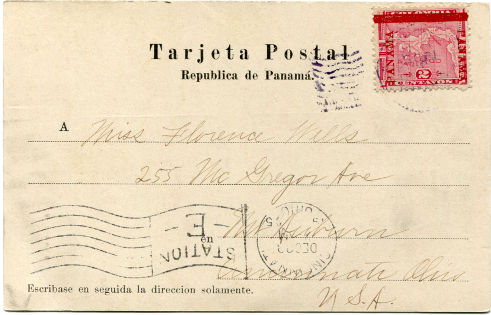 Tarjeta Postal
Republica de Panamá.
COLOMBIA
PANAMA
PANAMA
2
CENTAVOS
A Miss Florence Wells
255 Mc Gregor Ave
en Mt Auburn
Cincinnati Ohio
U.S.A.
STATION
E
CINCINNATI
OHIO
DEC
Escribase en seguida la direccion solamente.